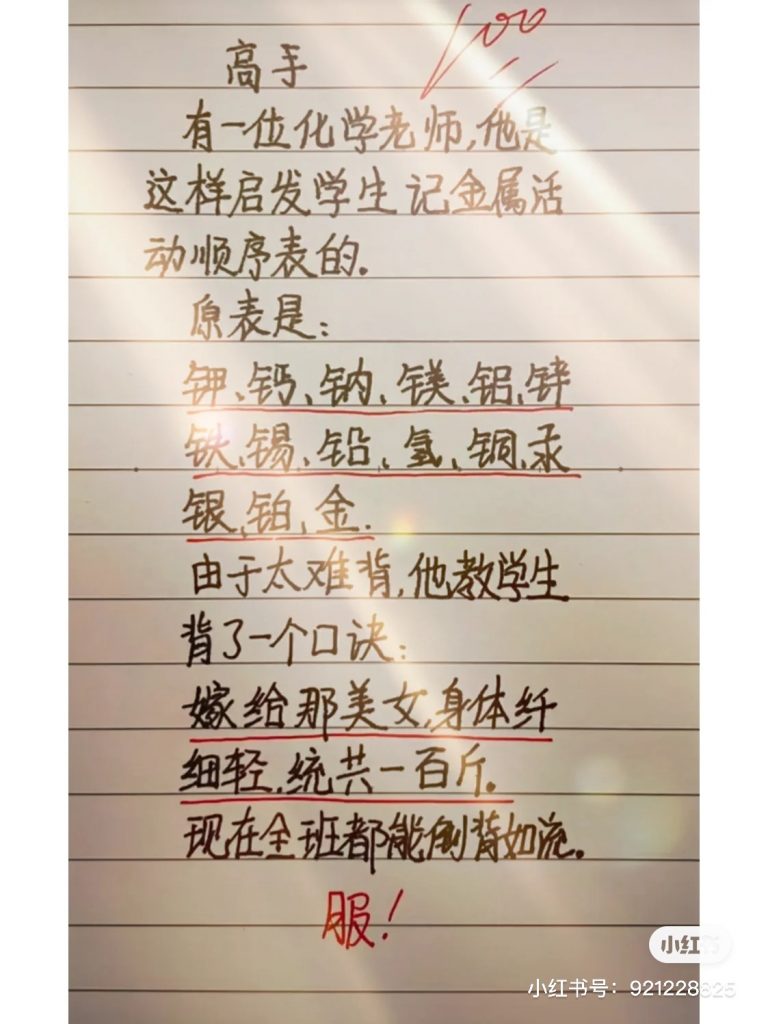 100
高手
有一位化学老师,他是
这样启发学生记金属活
动顺序表的.
原表是:
钾、钙、钠、镁、铝、锌
铁、锡、铅、氢、铜、汞
银、铂、金.
由于太难背,他教学生
背了一个口诀:
嫁给那美女,身体纤
细轻,统共一百斤.
现在全班都能倒背如流.
服!
小红书
小红书号: 921228825